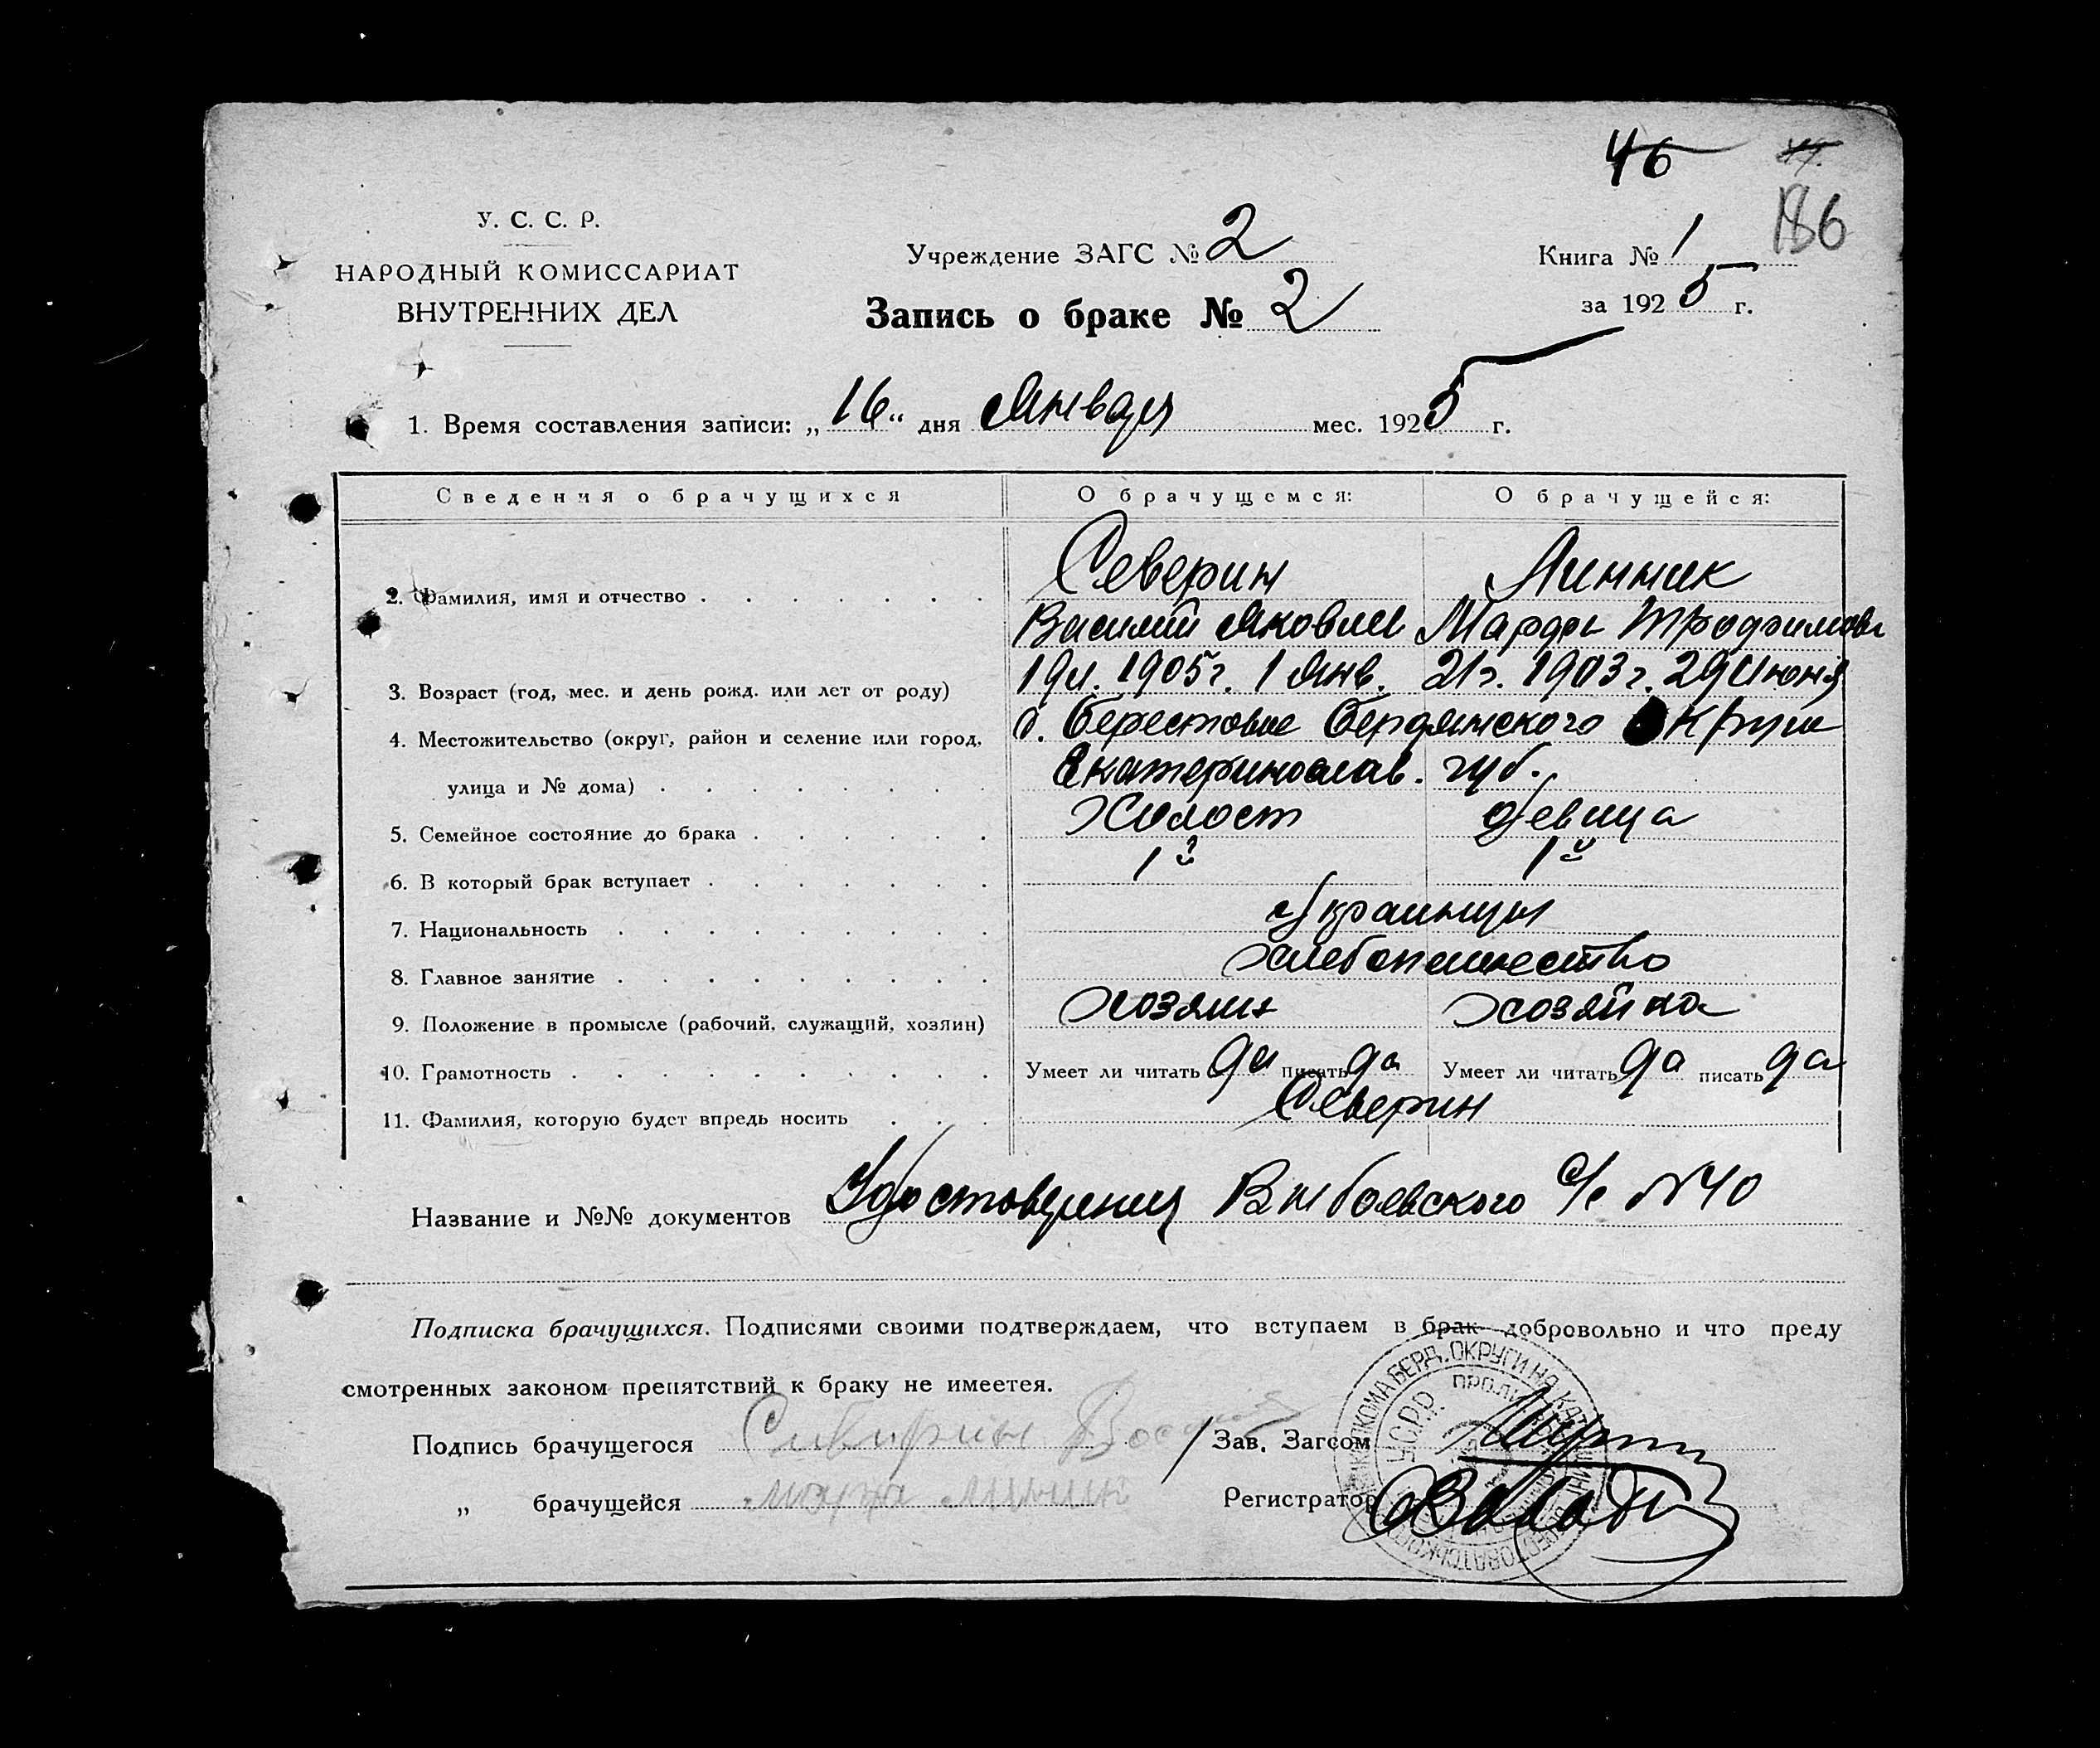 46
186
У. С. С. Р.
НАРОДНЫЙ КОМИССАРИАТ
ВНУТРЕННИХ ДЕЛ
Учреждение ЗАГС № 2
Запись о браке № 2
Книга № 1
за 1925 г.
1. Время составления записи: „16“ дня Января мес. 1925 г.
Сведения о брачущихся О брачущемся: О брачущейся:
2. Фамилия, имя и отчество Северин Линник
Василий Яковлев Марфы Трофимова
3. Возраст (год, мес. и день рожд. или лет от роду) 19 л. 1905 г. 1 Янв. 21 г. 1903 г. 29 Июня
4. Местожительство (округ, район и селение или город, Берестовое Бердянского Округи
улица и № дома) Екатеринослав. губ.
5. Семейное состояние до брака Холост девица
6. В который брак вступает 1й 1й
7. Национальность Украинцы
8. Главное занятие хлебопашество
9. Положение в промысле (рабочий, служащий, хозяин) хозяин хозяйка
10. Грамотность Умеет ли читать да писать да Умеет ли читать да писать да
11. Фамилия, которую будет впредь носить Северин
Название и №№ документов Удостоверения с/с №40
Подписка брачущихся. Подписями своими подтверждаем, что вступаем в брак добровольно и что преду
смотренных законом препятствий к браку не имеется.
Подпись брачущегося Сиверин Зав. Загсом
„ брачущейся Регистратор
УСРР